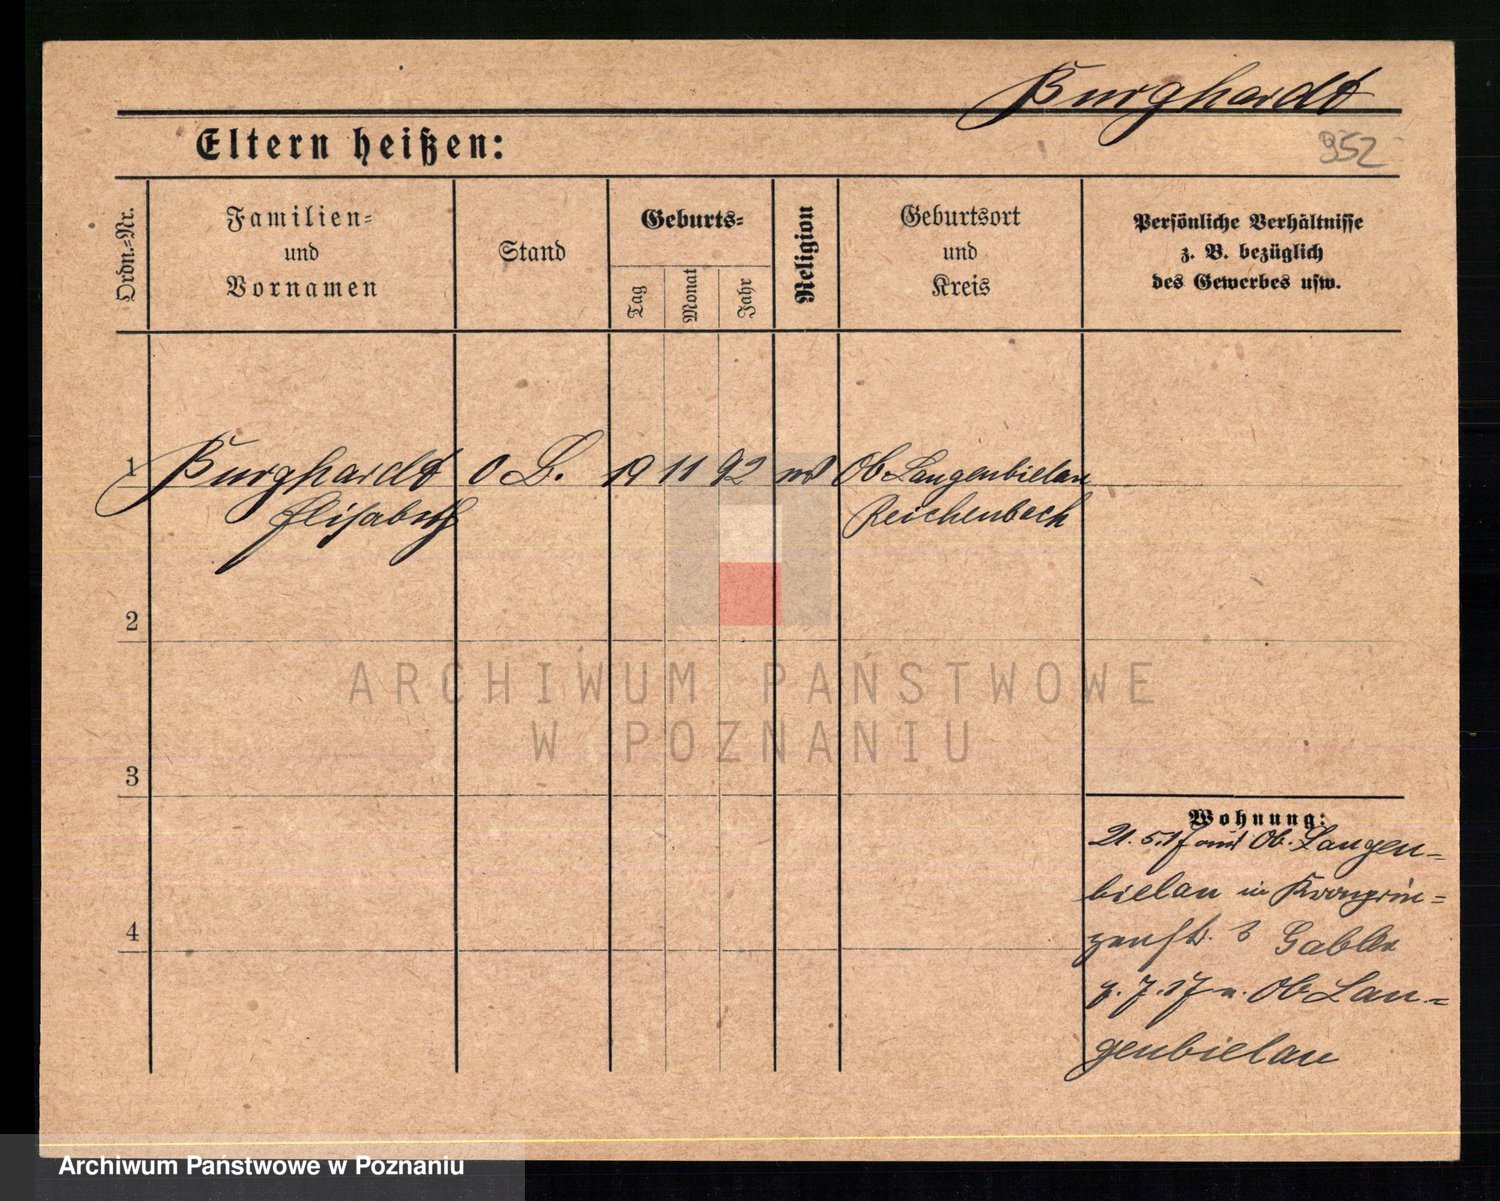 Burghardt
Eltern heißen:
952
Ordn.-Nr.
Familien-
und
Vornamen
Stand
Geburts-
Tag
Monat
Jahr
Religion
Geburtsort
und
Kreis
Persönliche Verhältnisse
z. B. bezüglich
des Gewerbes usw.
1 Burghardt O B. 19 11 92 Ob Langenbielau
Elisabeth Reichenbach
2
3
4
Wohnung:
21.5.17 aus Ob. Langen-
bielau in Kronprin-
zenstr. Gabler
7.17 n. Ob Lan-
genbielau
ARCHIWUM PAŃSTWOWE
W POZNANIU
Archiwum Państwowe w Poznaniu